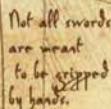 Not all swords
are meant
to be gripped
by hands.